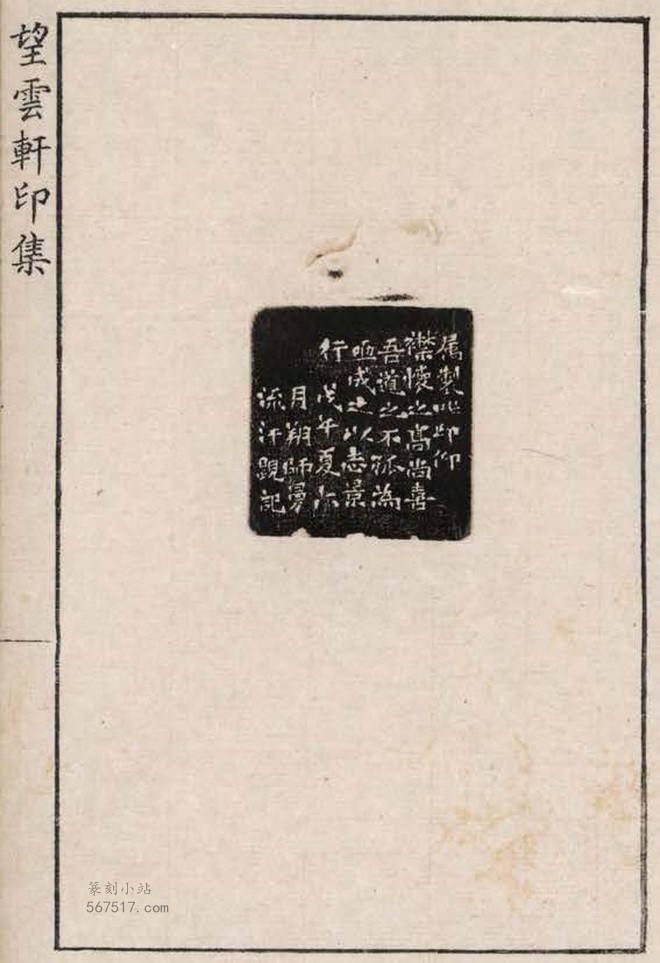 望雲軒印集
屬製此印仰
襟懷之高尚喜
吾道之不孤為
亟成之以志景
行 戊午夏六
月翔師曼
流汗覭記
篆刻小站
567517.com